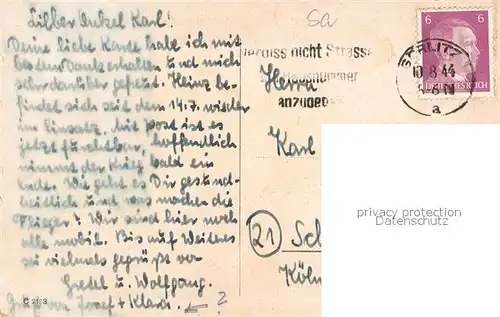 Lieber Onkel Karl!
Deine liebe Karte habe ich mit
bestem Dank erhalten und mich
sehr darüber gefreut. Heinz be-
findet sich seit dem 14.7. wieder
im Einsatz. Mit Post ist es
jetzt furchtbar, hoffentlich
nimmt der Krieg bald ein
Ende. Wie geht es Dir gesund-
heitlich und was machen die
Flieger? Wir sind hier noch
alle mobil. Bis auf Weiteres
sei vielmals gegrüßt von
Gretel u. Wolfgang.
Grüße von Josef + Klara. ?
C 2193
5a
nicht Strasse
Hausnummer
anzugeben
6 6
GÖRLITZ
10.8.44
a
DEUTSCHES REICH
Herrn
Karl
21
Köln
privacy protection
Datenschutz